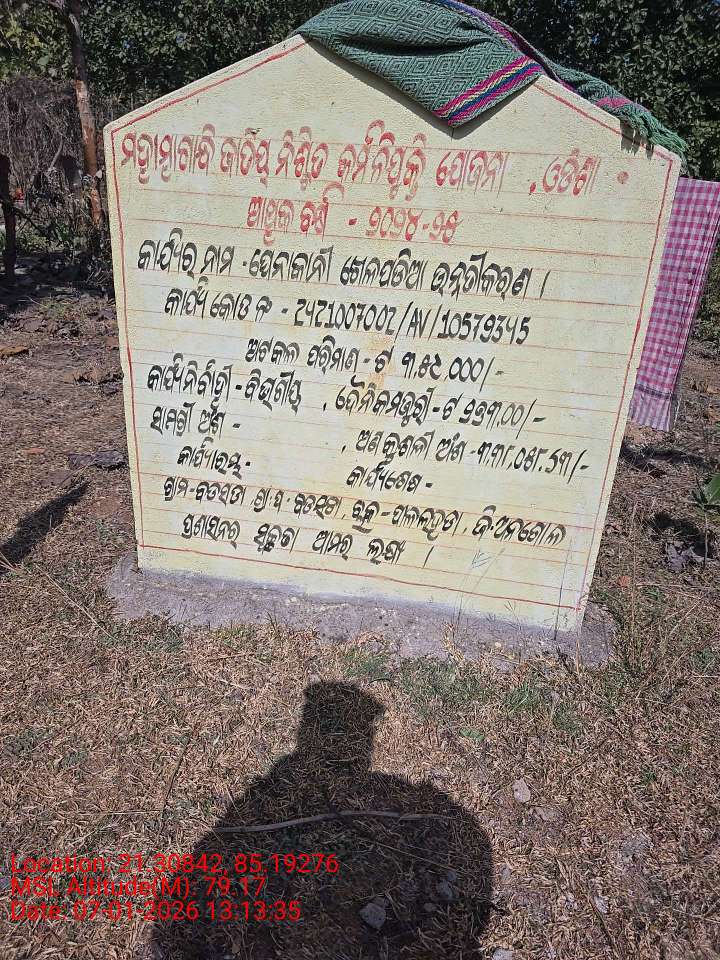 ମହାତ୍ମାଗାନ୍ଧି ଜାତୀୟ ନିଶ୍ଚିତ କର୍ମନିଯୁକ୍ତି ଯୋଜନା , ଓଡିଶା
ଆର୍ଥିକ ବର୍ଷ - ୨୦୨୪-୨୫
କାର୍ଯ୍ୟର ନାମ - ସେନାକାନୀ ଖେଳପଡିଆ ଉନ୍ନତୀକରଣ ।
କାର୍ଯ୍ୟ କୋଡ ନଂ - 2421007002/AV/10579345
ଅଟକଳ ପରିମାଣ - ଟ ୩,୫୧,000/-
କାର୍ଯ୍ୟନିର୍ବାହୀ - ବିଭାଗୀୟ , ଦୈନିକମଜୁରୀ - ଟ ୨୭୩.00/-
ସାମଗ୍ରୀ ଅଂଶ - , ଅଣକୁଶଳୀ ଅଂଶ -
କାର୍ଯ୍ୟାରମ୍ଭ - କାର୍ଯ୍ୟଶେଷ -
ଗ୍ରାମ - ବଡସଡା ଗ୍ରା.ପ - , ବ୍ଲକ - ପାଲଲହଡା , ଜି:ଅନଗୋଳ
ପ୍ରଶାସନର ସ୍ୱଚ୍ଛତା ଆମର ଲକ୍ଷ୍ୟ ।
Location: 21.30842, 85.19276
MSL Altitude(M): 79.17
Date: 07-01-2026 13:13:35